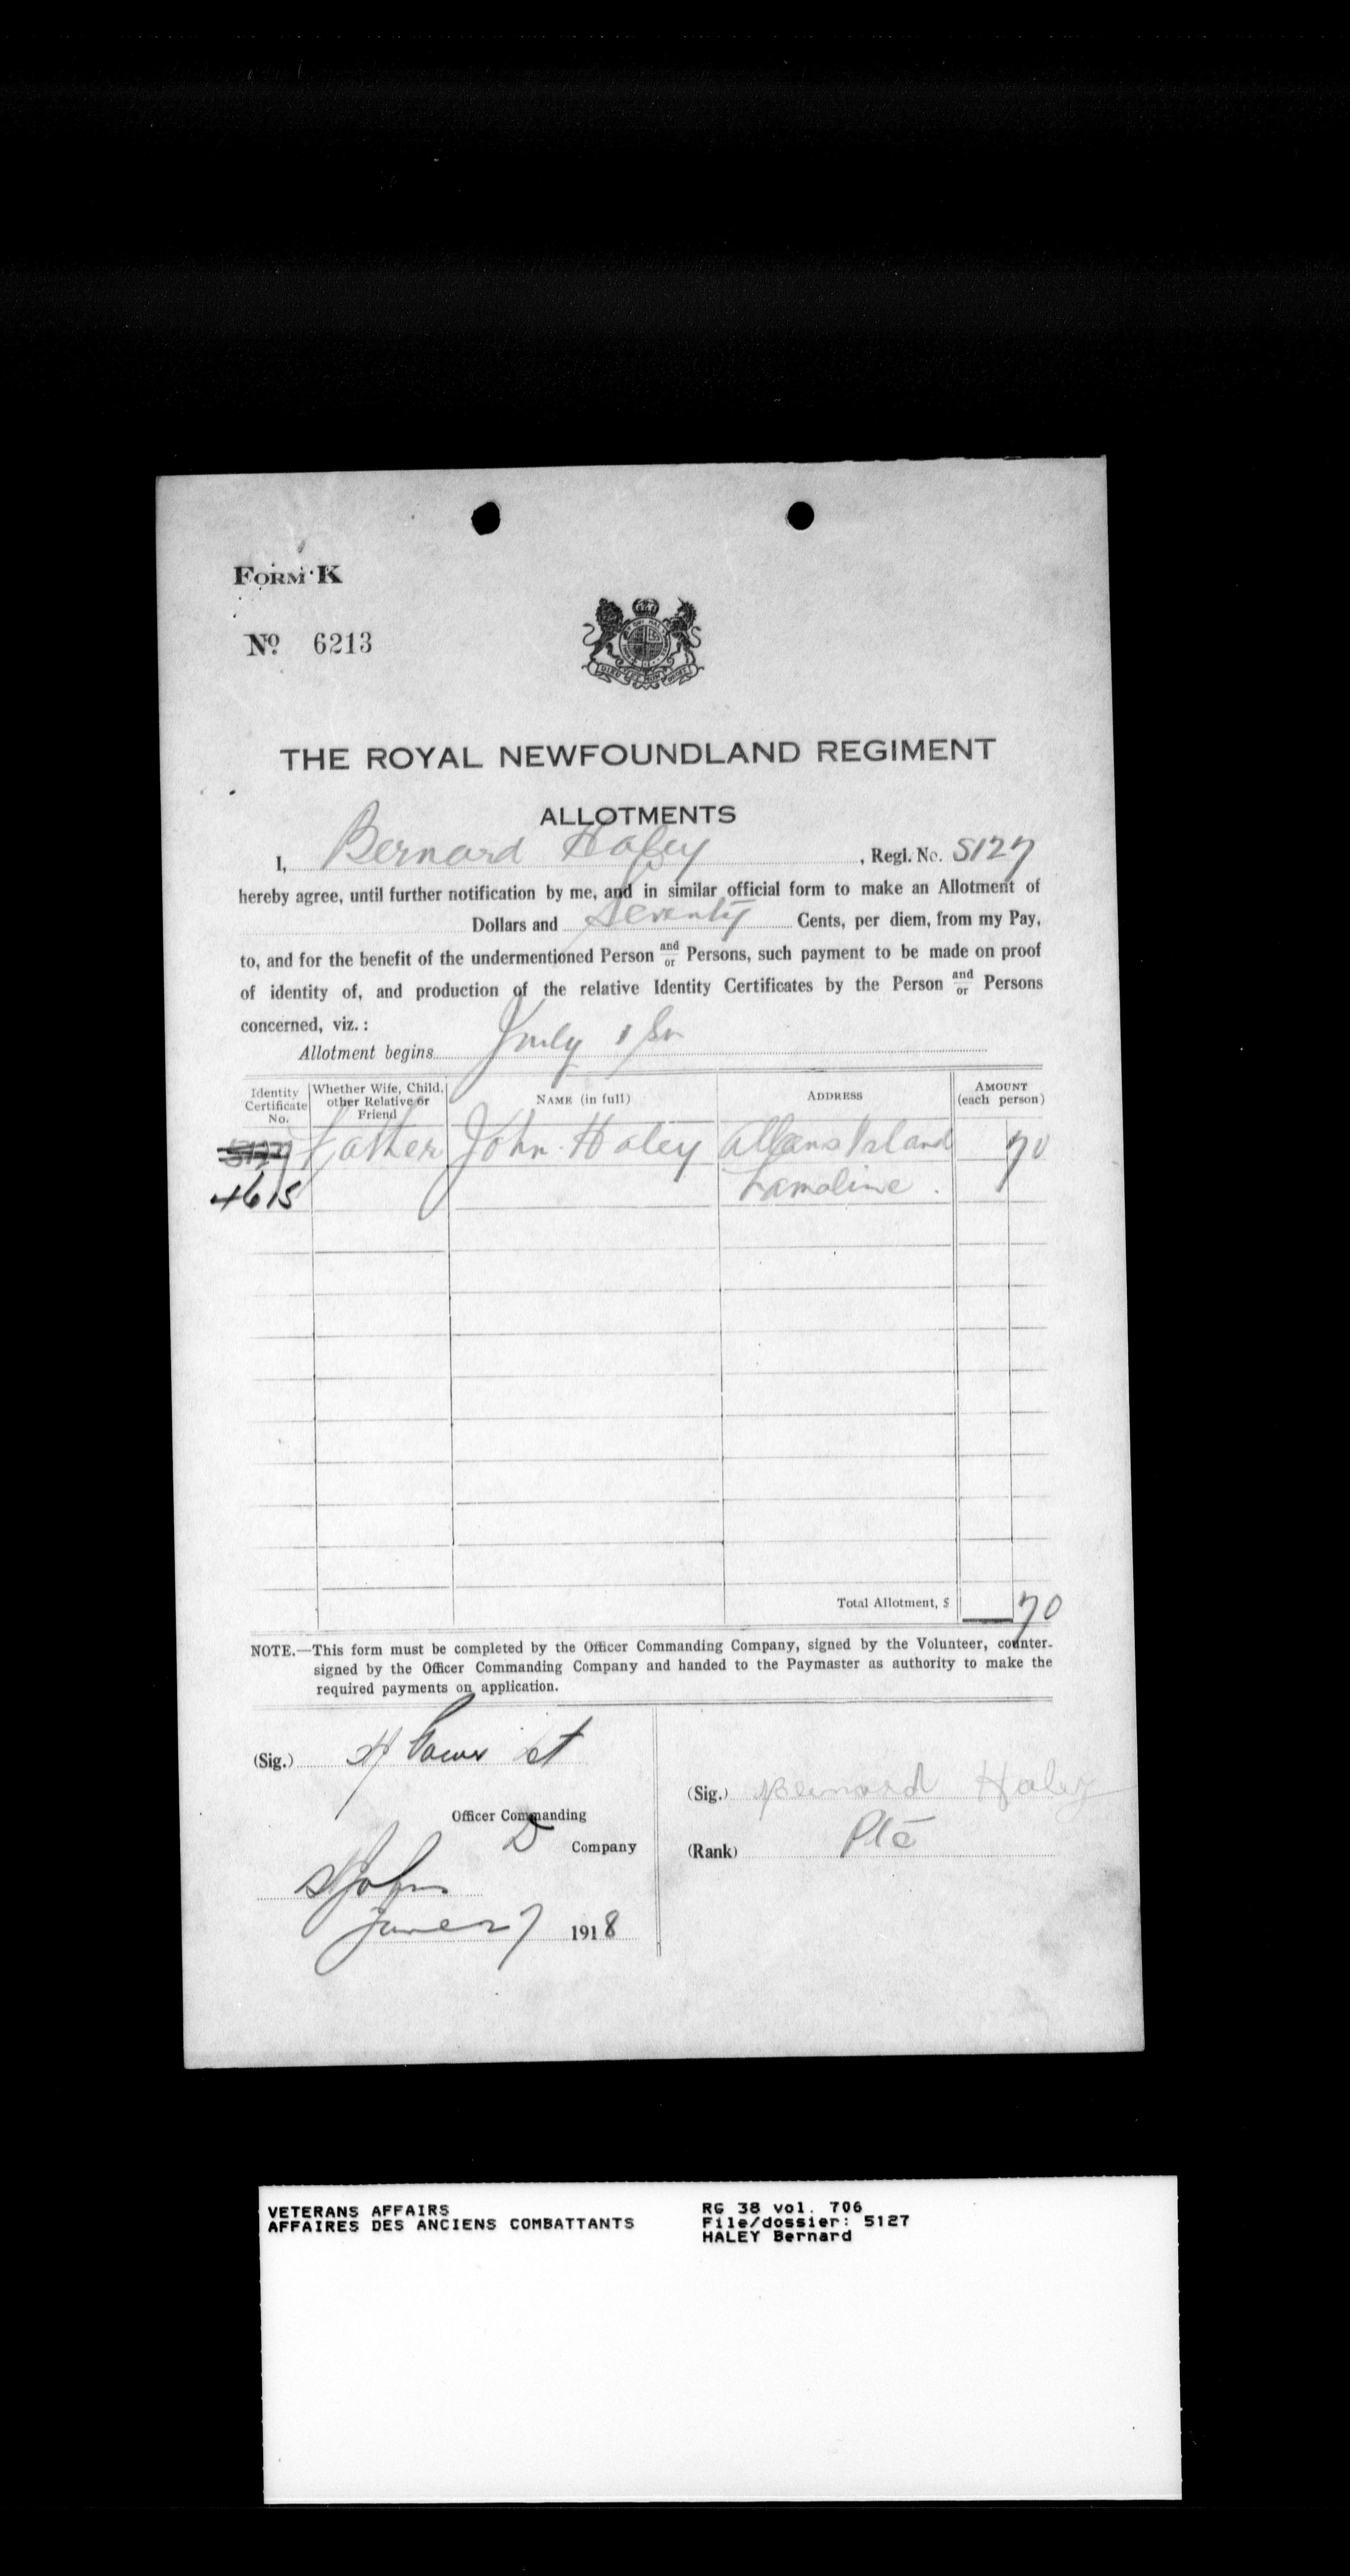 FORM K
No 6213
THE ROYAL NEWFOUNDLAND REGIMENT
ALLOTMENTS
I, Bernard Haley, Regl. No. 5127
hereby agree, until further notification by me, and in similar official form to make an Allotment of
Dollars and Seventy Cents, per diem, from my Pay,
to, and for the benefit of the undermentioned Person and/or Persons, such payment to be made on proof
of identity of, and production of the relative Identity Certificates by the Person and/or Persons
concerned, viz.:
Allotment begins July 1
Identity Certificate No. Whether Wife, Child, other Relative or Friend NAME (in full) ADDRESS AMOUNT (each person)
5127 Father John Haley Allans Island 70
4615 Lamaline.
Total Allotment, $ 70
NOTE.—This form must be completed by the Officer Commanding Company, signed by the Volunteer, counter-
signed by the Officer Commanding Company and handed to the Paymaster as authority to make the
required payments on application.
(Sig.)
(Sig.) Bernard Haley
Officer Commanding
D Company
(Rank) Pte
St Johns
June 27 1918
VETERANS AFFAIRS RG 38 vol. 706
AFFAIRES DES ANCIENS COMBATTANTS File/dossier: 5127
HALEY Bernard